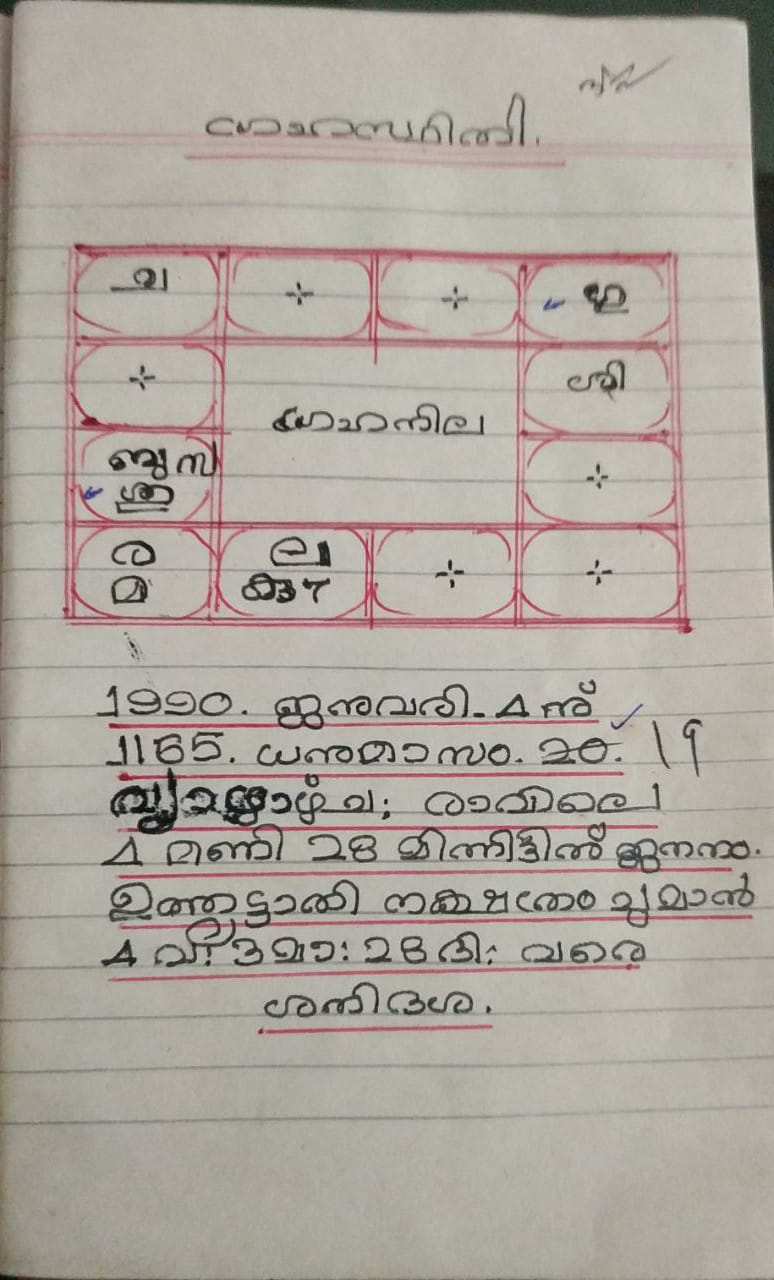 ഗ്രഹസ്ഥിതി.
ച
വ്യ
ശി
ഗ്രഹനില
ബു സ
ശു
ര
മ
ല
കു ൭
1990. ജനുവരി. 4 ന്
1165. ധനുമാസം. 20. 19
വ്യാഴാഴ്ച; രാവിലെ
4 മണി 28 മിനിട്ടിൽ ജനനം.
ഉത്തൃട്ടാതി നക്ഷത്രം ചൂമാൻ
4 വ: 3 മാ: 28 ദി: വരെ
ശനിദശ.